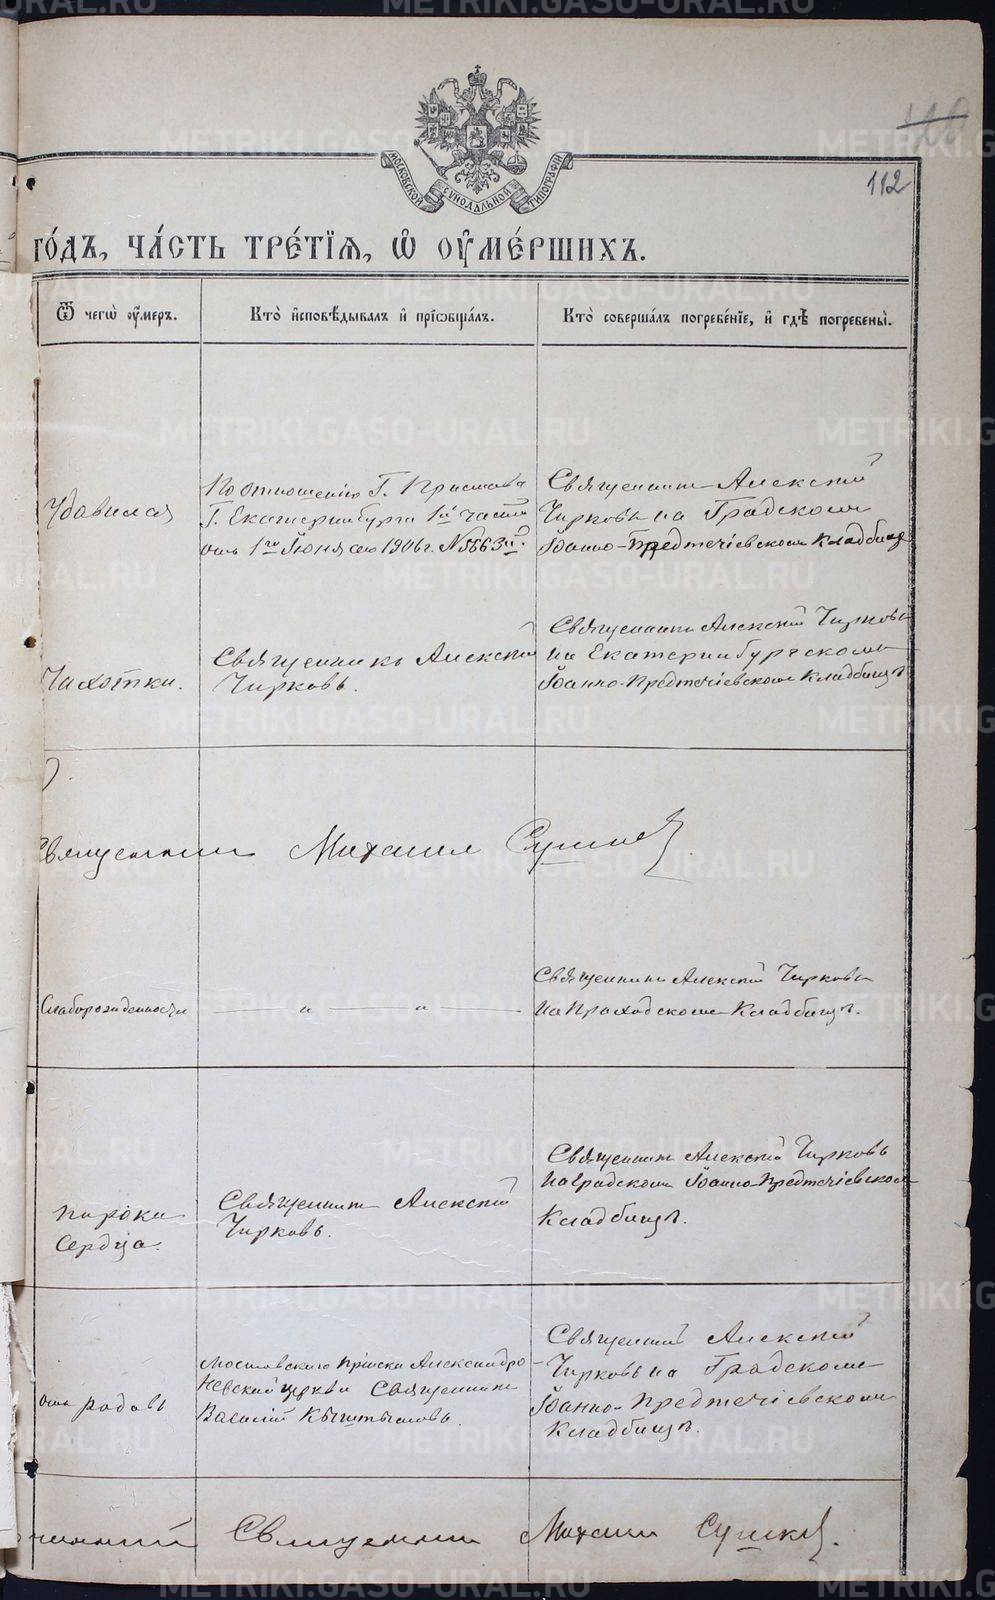 112
МОСКОВСКОЙ СУНОДАЛЬНОЙ ТИПОГРАФІИ
ГО́ДЪ, ЧА́СТЬ ТРЕ́ТІѦ, Ѡ҆ ОУ҆МЕ́РШИХЪ.
Ѿ чегѡ̀ оу҆́меръ.
Кто̀ и҆сповѣ́дывалъ и҆ прїѡбща́лъ.
Кто̀ соверша́лъ погребе́нїе, и҆ гдѣ̀ погребены̀.
Удавился
По отношенію Г. Пристава
Г. Екатеринбурга 1й части
отъ 1го Іюня сего 1906 г. №5663й.
Священникъ Алексій
Чирковъ на Градскомъ
Іоанно-Предтечіевскомъ кладбищѣ
Чахотки.
Священникъ Алексій
Чирковъ.
Священникъ Алексій Чирковъ
на Екатеринбургскомъ
Іоанно-Предтечіевскомъ кладбищѣ
Священник Михаил
Слаборожденности
— „ — „ —
Священникъ Алексій Чирковъ
на Приходскомъ кладбищѣ.
порока
сердца.
Священникъ Алексій
Чирковъ.
Священникъ Алексій Чирковъ
на Градскомъ Іоанно-Предтечіевскомъ
кладбищѣ.
отъ родовъ
Мостовскаго пріиска Александро
Невской церкви Священникъ
Василій
Священникъ Алексій
Чирковъ на Градскомъ
Іоанно-Предтечіевскомъ
кладбищѣ.
Священник Михаил
METRIKI.GASO-URAL.RU